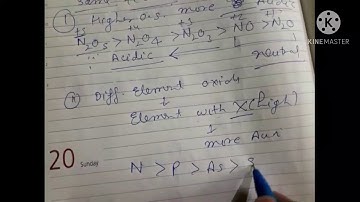 ① Higher O.S. more Acidic
+5 +4 +3 +2 +1
N₂O₅ > N₂O₄ > N₂O₃ > NO > N₂O
Acidic neutral
Diff. Element oxide
↓
Element with X (High)
↓
more Aci
N > P > As > S
20 Sunday
KINEMASTER